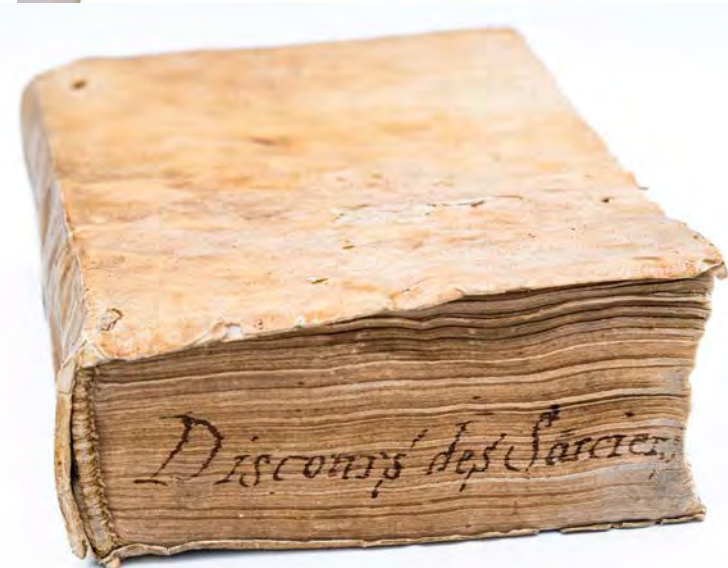 Discours des Sorcier